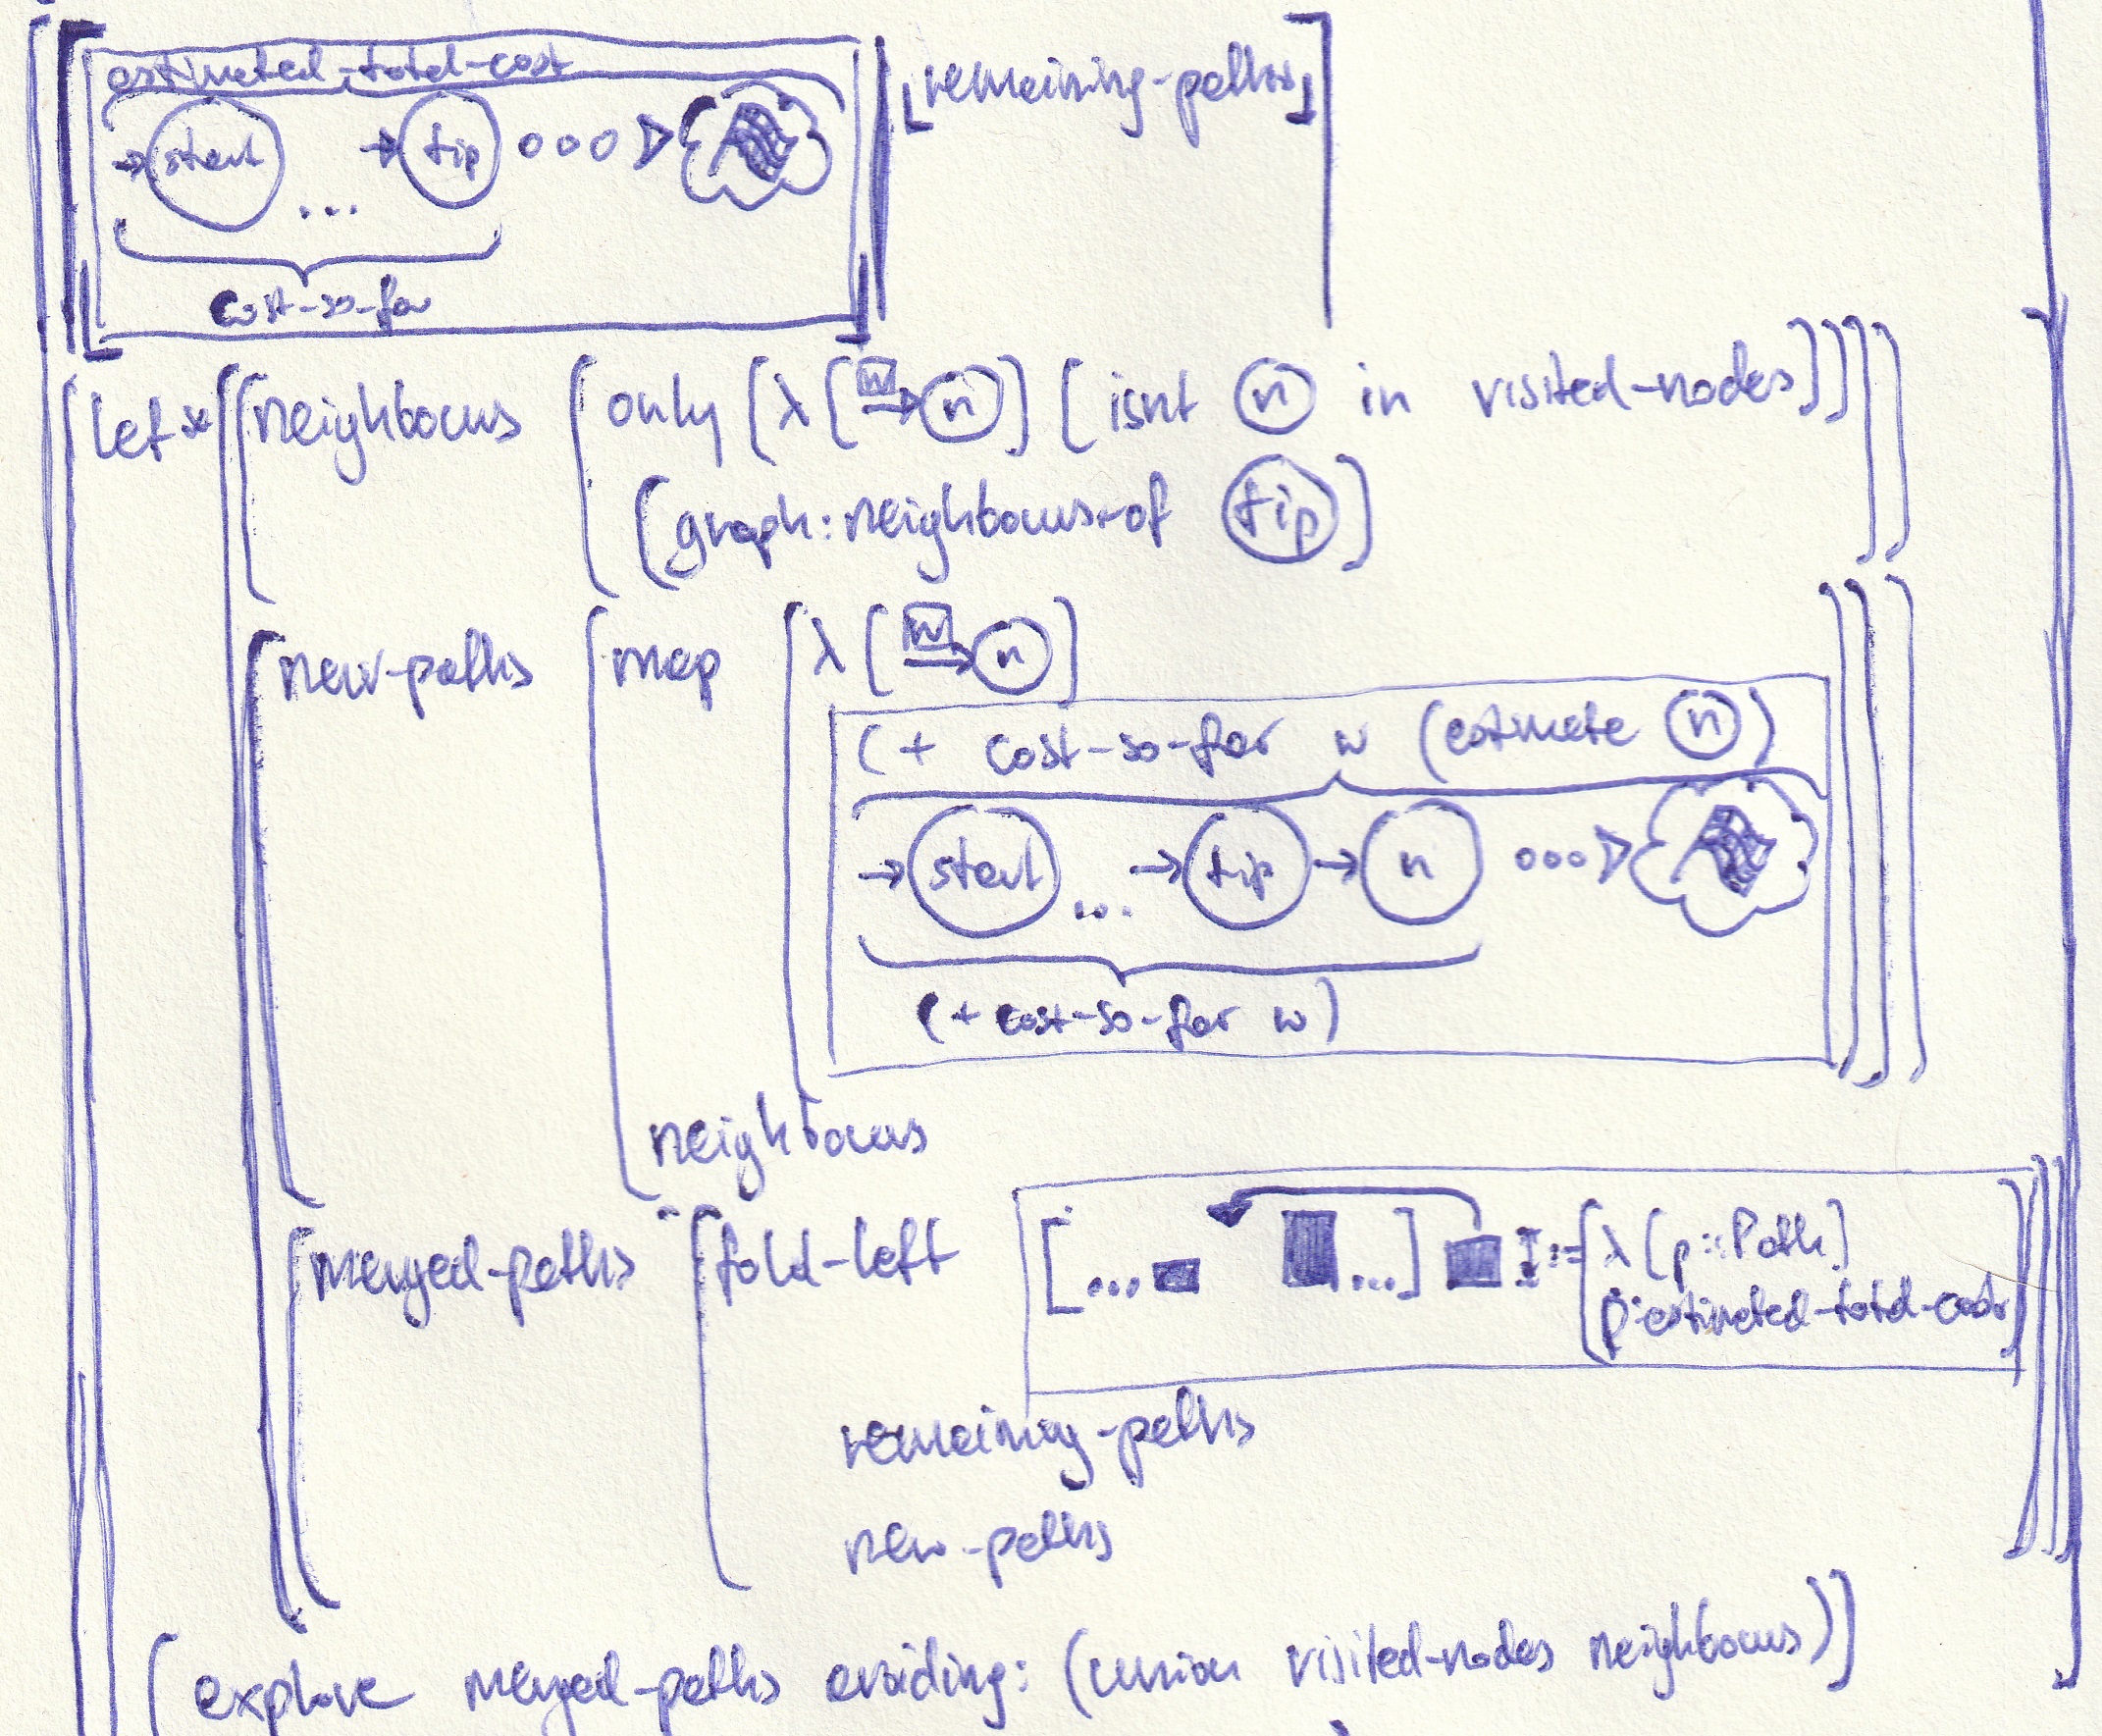 estimated-total-cost
→ start ... → tip ooo▷
[remaining-paths]
cost-so-far
[let* [[neighbours [only [λ [w → n] [isnt n in visited-nodes]]]]
(graph:neighbours-of tip)
[new-paths [map [λ [w → n]
(+ cost-so-far w (estimate n)
→ start ... → tip → n ooo▷
(+ cost-so-far w)
neighbours
[merged-paths [fold-left [... ...] := [λ [p::Path]
p:estimated-total-cost]
remaining-paths
new-paths
(explore merged-paths avoiding: (union visited-nodes neighbours)]